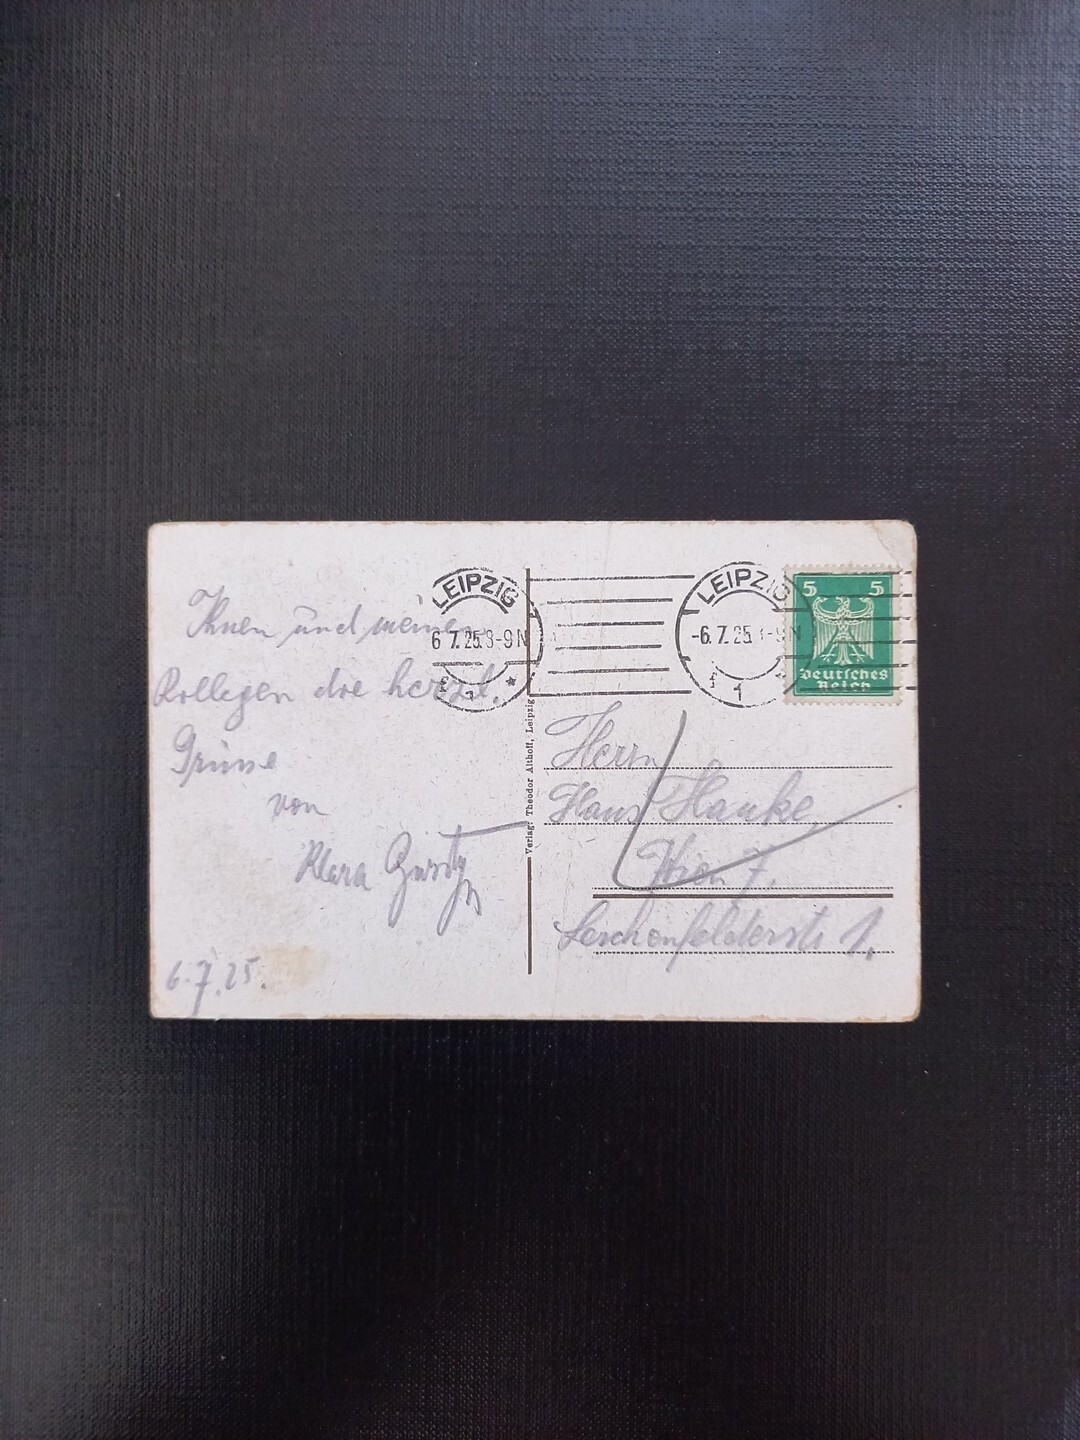 Ihnen und meinen
Kollegen die herzl.
Grüsse
von
Klara
6.7.25.
LEIPZIG
6 7.25.8-9N
1 *
LEIPZIG
-6.7.25.8-9N
1
5 5
Deutsches
Reich
Verlag: Theodor Althoff, Leipzig
Herrn
Hans Hanke
Wien 7.
Lerchenfelderstr 1.